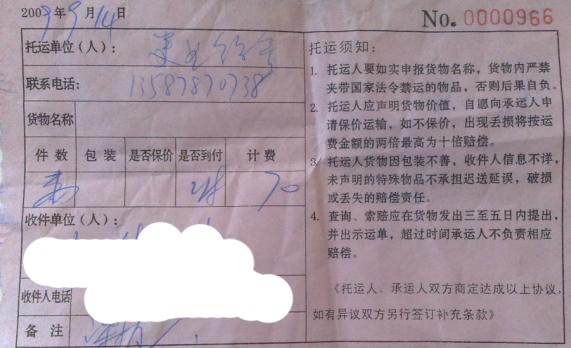 2009年9月14日
No. 0000966
托运单位(人):
联系电话: 13587870738
货物名称
件数 包装 是否保价 是否到付 计费
70
收件单位(人):
收件人电话
备注
托运须知:
1. 托运人要如实申报货物名称,货物内严禁
夹带国家法令禁运的物品,否则后果自负。
2. 托运人应声明货物价值,自愿向承运人申
请保价运输,如不保价,出现丢损将按运
费金额的两倍最高为十倍赔偿。
3. 托运人货物因包装不善,收件人信息不详,
未声明的特殊物品不承担迟送延误,破损
或丢失的赔偿责任。
4. 查询、索赔应在货物发出三至五日内提出,
并出示运单,超过时间承运人不负责相应
赔偿。
《托运人、承运人双方商定达成以上协议,
如有异议双方另行签订补充条款》